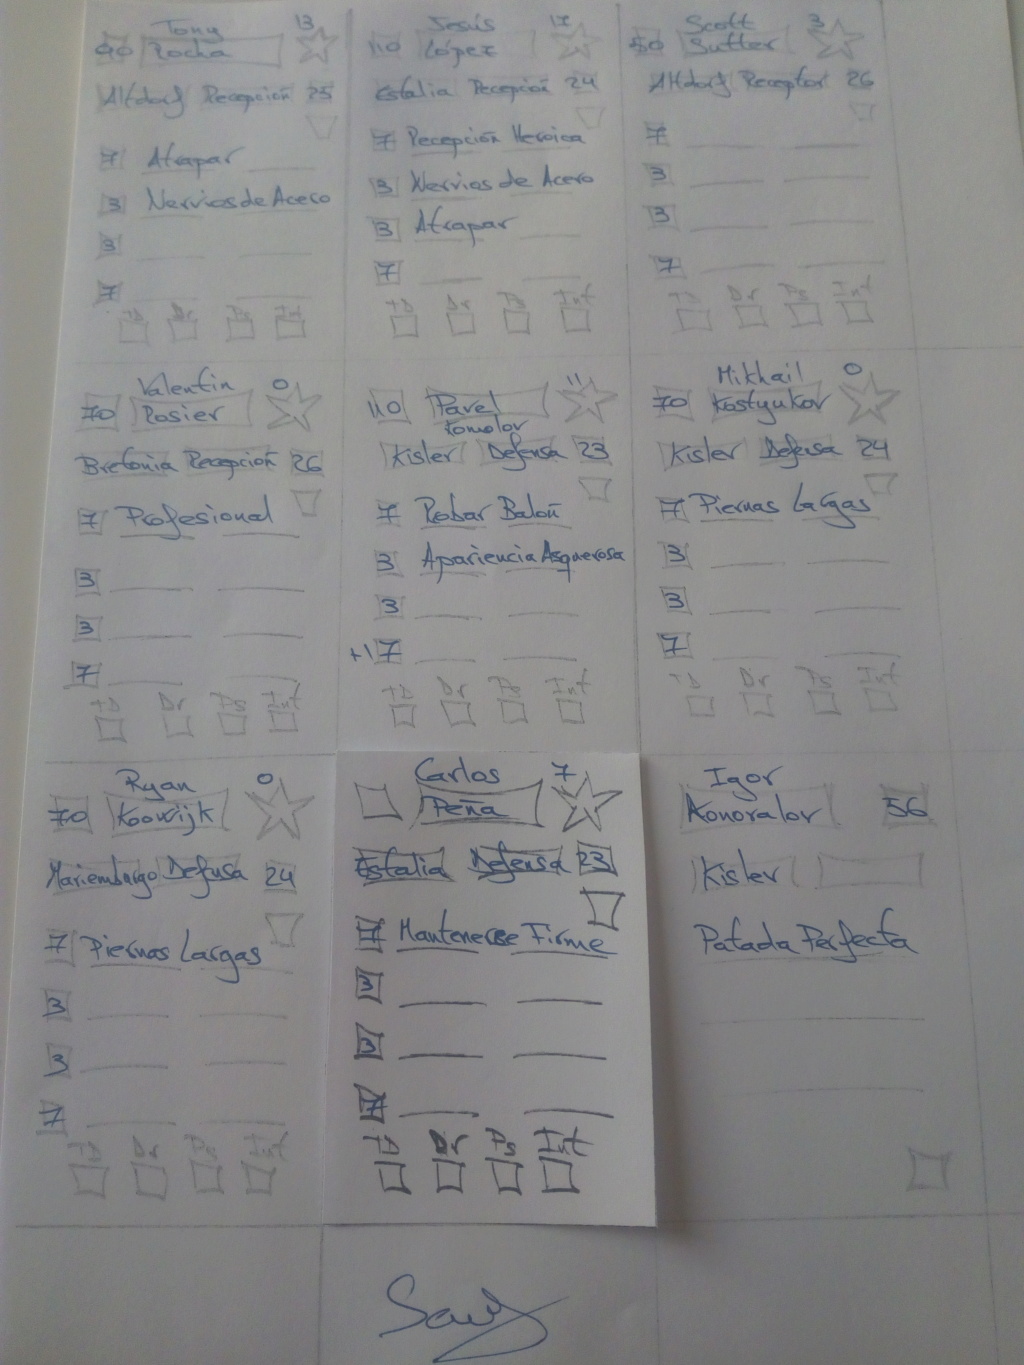 Tony 13
90 Rocha
Altdorf Recepción 25
7 Atrapar
3 Nervios de Acero
3
7
TD Dr Ps Int
Jesús 17
110 López
Estalia Recepción 24
7 Recepción Heroica
3 Nervios de Acero
3 Atrapar
7
TD Dr Ps Int
Scott 3
50 Sutter
Altdorf Receptor 26
7
3
3
7
TD Dr Ps Int
Valentin 0
70 Rosier
Bretonia Recepción 26
7 Profesional
3
3
7
TD Dr Ps Int
11
110 Pavel
Komolov
Kislev Defensa 23
7 Robar Balón
3 Apariencia Asquerosa
3
+1 7
TD Dr Ps Int
Mikhail 0
70 Kostyukov
Kislev Defensa 24
7 Piernas Largas
3
3
7
TD Dr Ps Int
Ryan 0
70 Koowijk
Mariemburgo Defensa 24
7 Piernas Largas
3
3
7
TD Dr Ps Int
Carlos 7
Peña
Estalia Defensa 23
7 Mantenerse Firme
3
3
7
TD Dr Ps Int
Igor
Konovalov 56
Kislev
Patada Perfecta